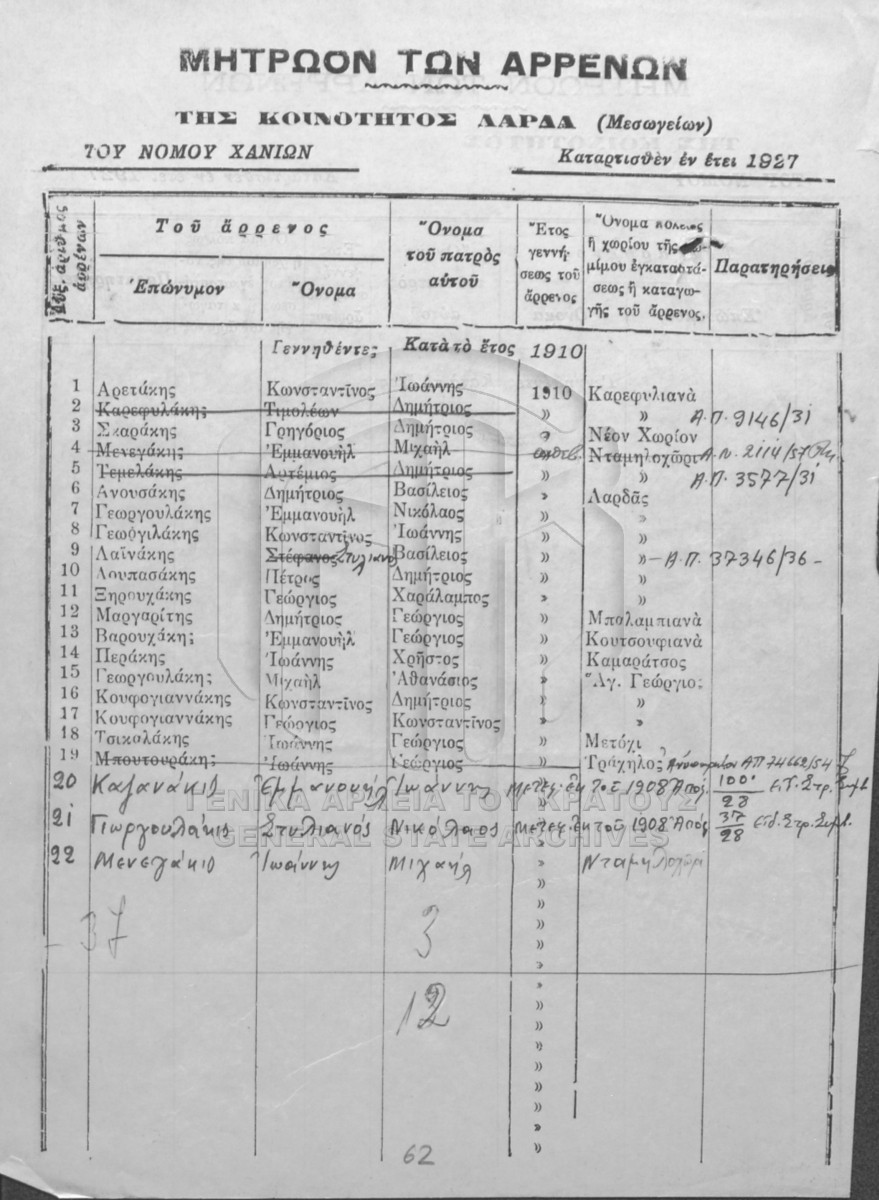 ΜΗΤΡΩΟΝ ΤΩΝ ΑΡΡΕΝΩΝ
ΤΗΣ ΚΟΙΝΟΤΗΤΟΣ ΛΑΡΔΑ (Μεσωγείων)
ΤΟΥ ΝΟΜΟΥ ΧΑΝΙΩΝ Καταρτισθὲν ἐν ἔτει 1927
Αὔξ. ἀριθμὸς ἀρρένων
Τοῦ ἄρρενος
Ἐπώνυμον Ὄνομα
Ὄνομα τοῦ πατρὸς αὐτοῦ
Ἔτος γεννήσεως τοῦ ἄρρενος
Ὄνομα πόλεως ἢ χωρίου τῆς μίμου ἐγκαταστάσεως ἢ καταγωγῆς τοῦ ἄρρενος.
Παρατηρήσεις
Γεννηθέντες Κατὰ τὸ ἔτος 1910
1 Αρετάκης Κωνσταντῖνος Ἰωάννης 1910 Καρεφυλιανὰ
2 Καρεφυλάκης Τιμολέων Δημήτριος » » Α.Π. 9146/31
3 Σκαράκης Γρηγόριος Δημήτριος » Νέον Χωρίον
4 Μενεγάκης Ἐμμανουὴλ Μιχαὴλ Νταμηλοχῶρι Α.Π. 2114/57
5 Τεμελάκης Αρτέμιος Δημήτριος » » Α.Π. 3577/31
6 Ανουσάκης Δημήτριος Βασίλειος » Λαρδᾶς
7 Γεωργουλάκης Ἐμμανουὴλ Νικόλαος » »
8 Γεωργιλάκης Κωνσταντῖνος Ἰωάννης » »
9 Λαϊνάκης Στέφανος Στυλιανος Βασίλειος » » – Α.Π. 37346/36 –
10 Λουπασάκης Πέτρος Δημήτριος » »
11 Ξηρουχάκης Γεώργιος Χαράλαμπος » »
12 Μαργαρίτης Δημήτριος Γεώργιος » Μπαλαμπιανὰ
13 Βαρουχάκης Ἐμμανουὴλ Γεώργιος » Κουτσουφιανὰ
14 Περάκης Ἰωάννης Χρῆστος » Καμαράτσος
15 Γεωργουλάκης Μιχαὴλ Ἀθανάσιος » Ἅγ. Γεώργιος
16 Κουφογιαννάκης Κωνσταντῖνος Δημήτριος » »
17 Κουφογιαννάκης Γεώργιος Κωνσταντῖνος » »
18 Τσικαλάκης Ἰωάννης Γεώργιος » Μετόχι
19 Μπουτουράκης Ἰωάννης Γεώργιος » Τράχηλος ΑΠ 74662/54
20 Καγανάκις Ἐμμανουήλ Ἰωάννης Μετεγ. ἐκ τοῦ 1908 Ἀπόφ. 100/28 Ε.Σ. Στρ. Συμβ.
21 Γιωργουλάκις Στυλιανός Νικόλαος Μετεγ. ἐκ τοῦ 1908 Ἀπόφ. 37/28 Ε.Σ. Στρ. Συμβ.
22 Μενεγάκις Ἰωάννης Μιχαήλ
ΓΕΝΙΚΑ ΑΡΧΕΙΑ ΤΟΥ ΚΡΑΤΟΥΣ
GENERAL STATE ARCHIVES
37 3
12
62